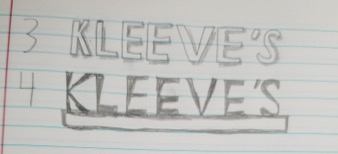 3 KLEEVE'S
4 KLEEVE'S